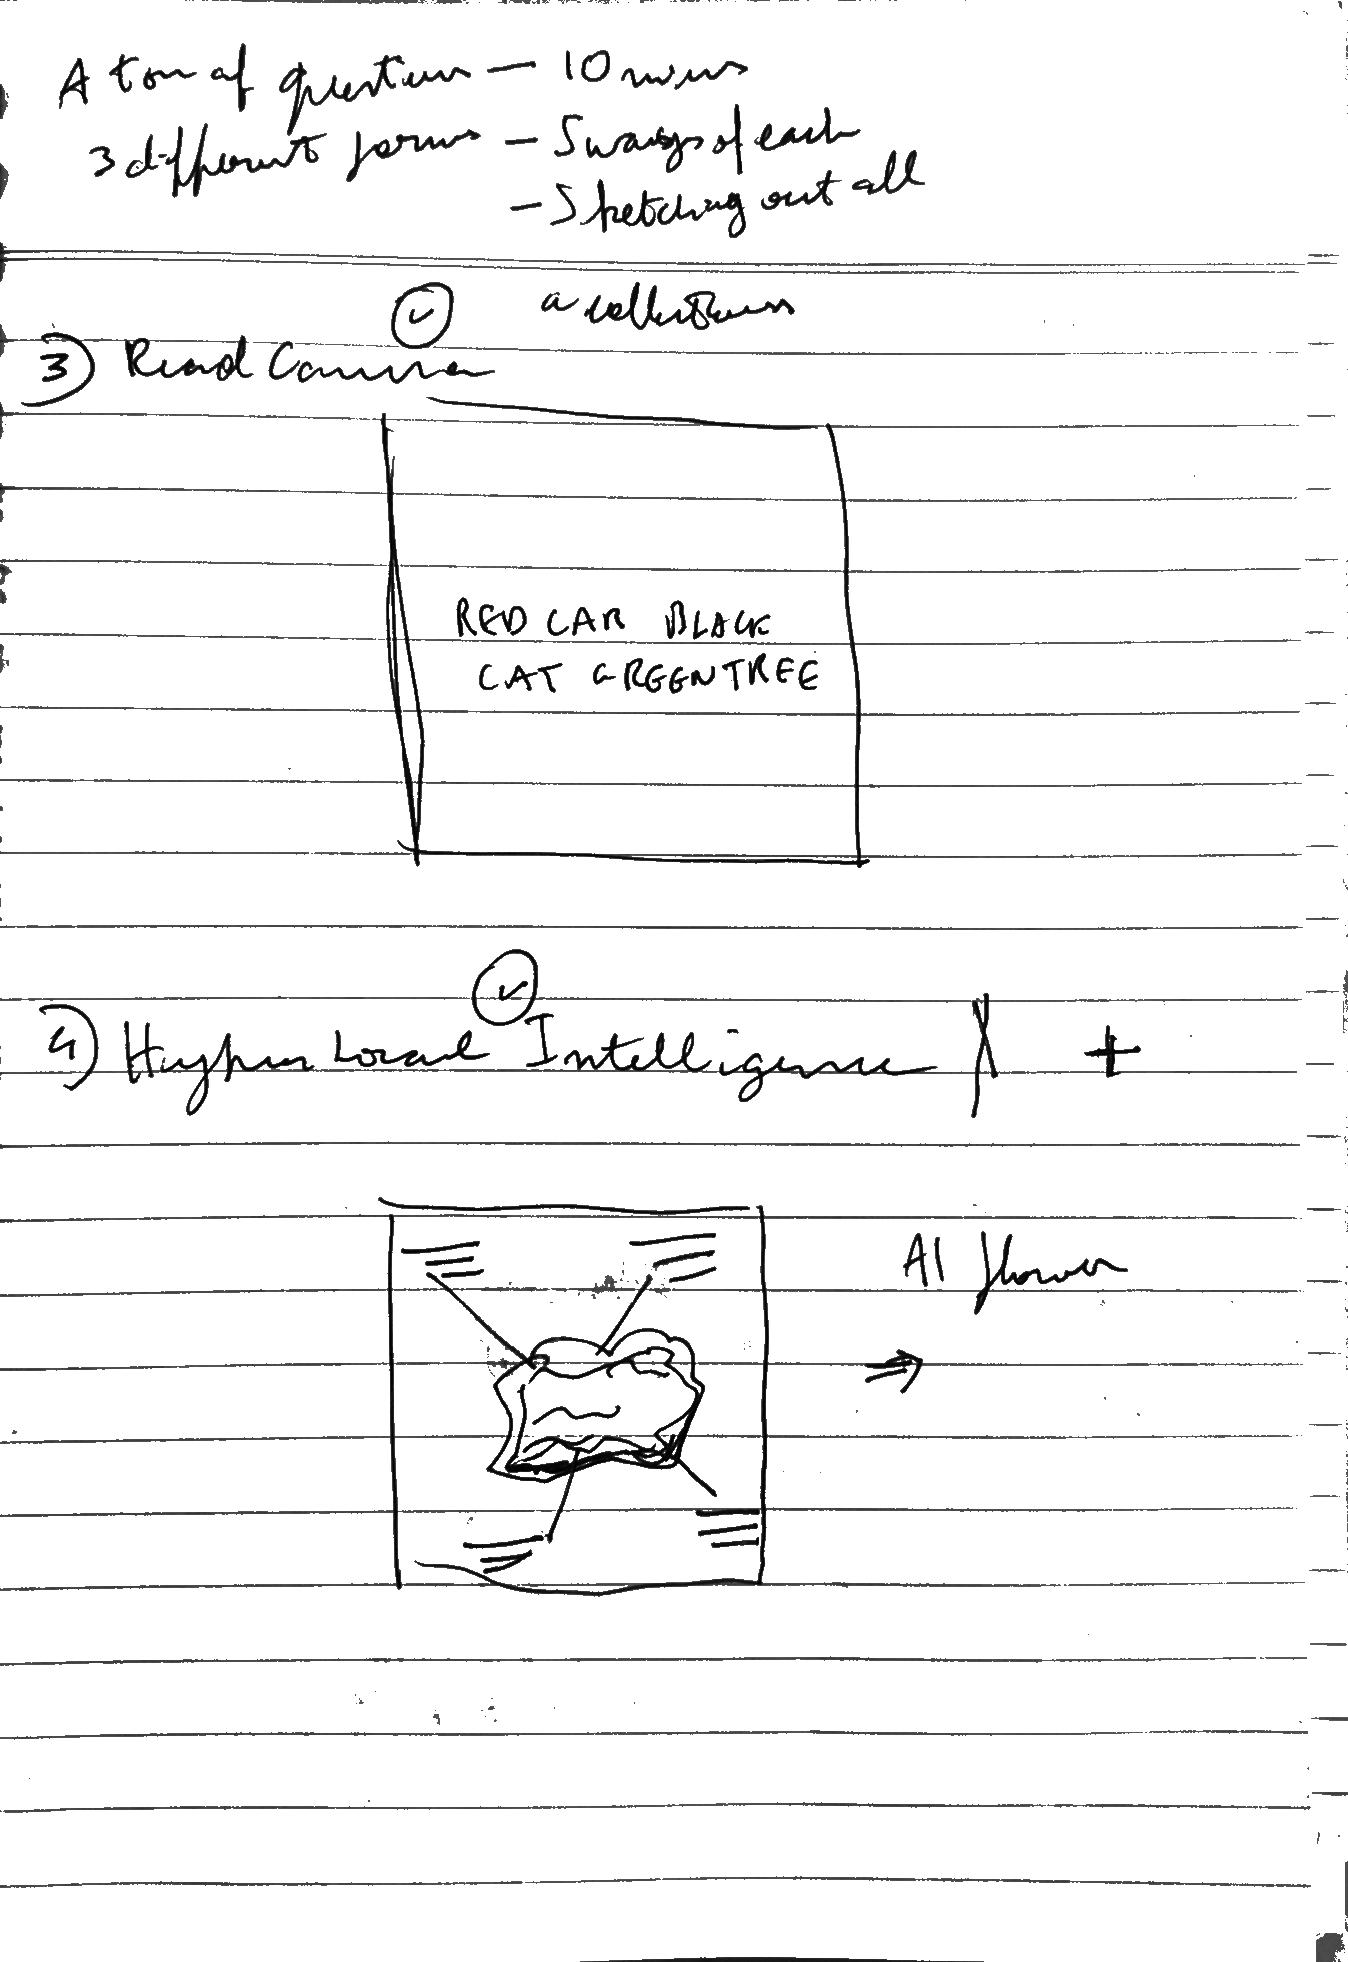 A ton of questions — 10 mins
3 different forms — 5 ways of each
— Sketching out all
a collections
3) Read Camera
RED CAR BLACK
CAT GREEN TREE
4) Hyper Local Intelligence +
AI flower